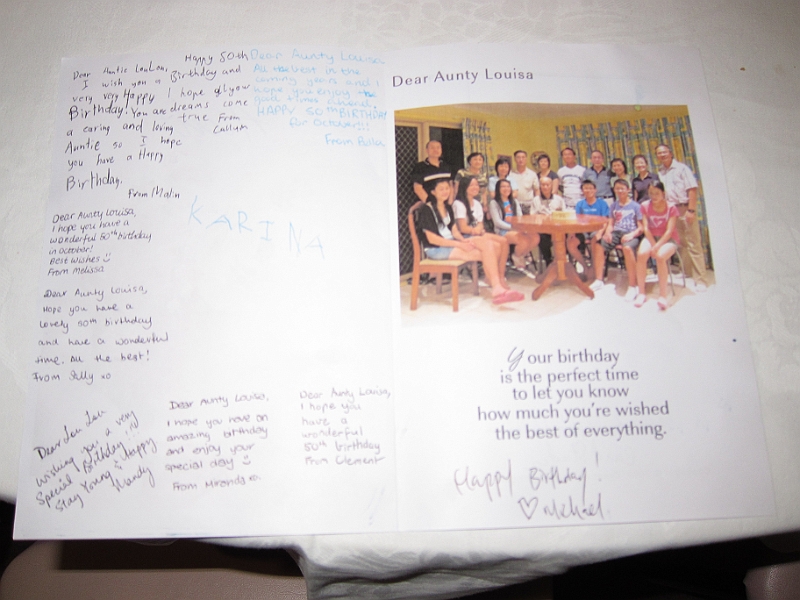 Dear Auntie LouLou,
I wish you a
very very Happy
Birthday. You are
a caring and loving
Auntie so I hope
you have a Happy
Birthday.
From Malin
Happy 50th
Birthday and
I hope all your
dreams come
true From
Callum
Dear Aunty Louisa
All the best in the
coming years and I
hope you enjoy the
good times ahead.
HAPPY 50TH BIRTHDAY
for October!!!
From
KARINA
Dear Aunty Louisa,
I hope you have a
wonderful 50th birthday
in October!
Best wishes
From Melissa
Dear Aunty Louisa,
Hope you have a
lovely 50th birthday
and have a wonderful
time. All the best!
From Jilly xo
Dear Lou Lou
Wishing you a very
Special Birthday!!!
Stay Young & Happy
Mandy
Dear Aunty Louisa,
I hope you have an
amazing birthday
and enjoy your
special day
From Miranda xo
Dear Aunty Louisa,
I hope you
have a
wonderful
50th birthday
From Clement
Dear Aunty Louisa
Your birthday
is the perfect time
to let you know
how much you're wished
the best of everything.
Happy Birthday!
♡ Michael.